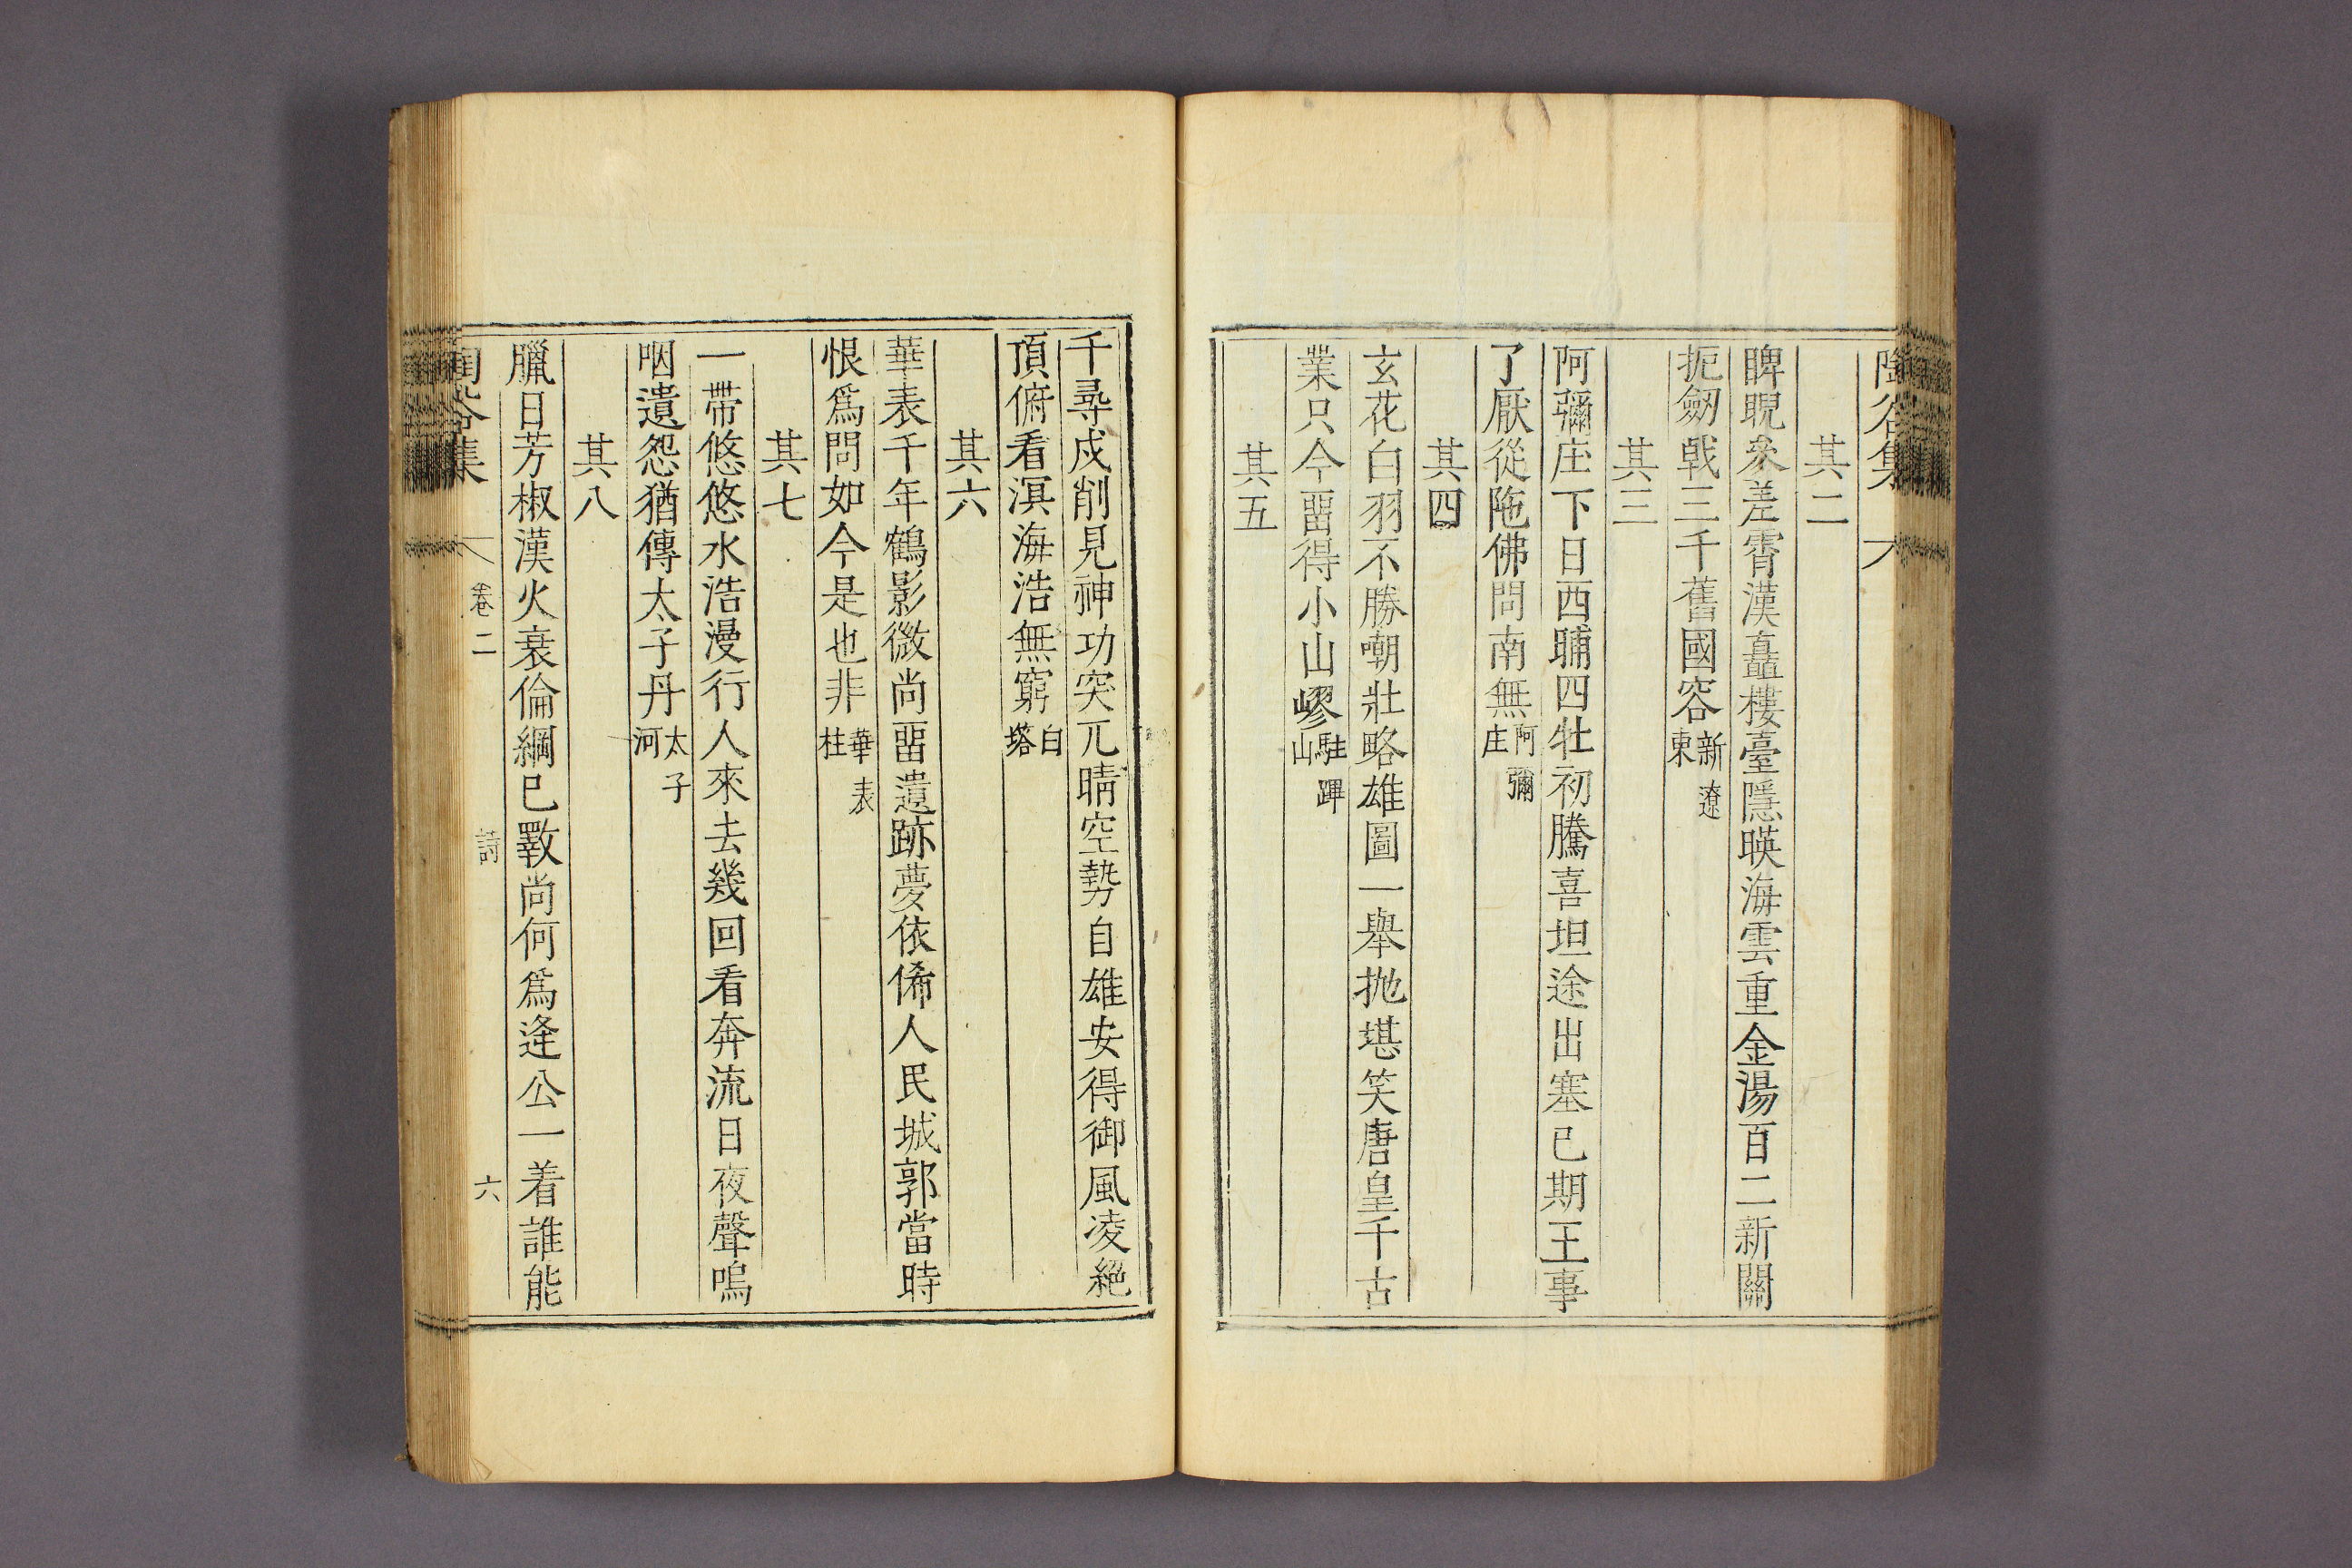 陶谷集
其二
睥睨參差霄漢矗樓臺隱暎海雲重金湯百二新關
扼劒戟三千舊國容新遼東
其三
阿彌庄下日西晡四牡初騰喜坦途出塞已期王事
了厭從陁佛問南無阿彌庄
其四
玄花白羽不勝嘲壯略雄圖一舉抛堪笑唐皇千古
業只今畱得小山嵺駐蹕山
其五
千尋戍削見神功突兀晴空勢自雄安得御風凌絕
頂俯看溟海浩無窮白塔
其六
華表千年鶴影微尚畱遺跡夢依俙人民城郭當時
恨爲問如今是也非華表柱
其七
一帶悠悠水浩漫行人來去幾回看奔流日夜聲嗚
咽遺怨猶傳太子丹太子河
其八
臘日芳椒漢火衰倫綱已斁尚何爲逄公一着誰能
陶谷集 卷二 詩 六